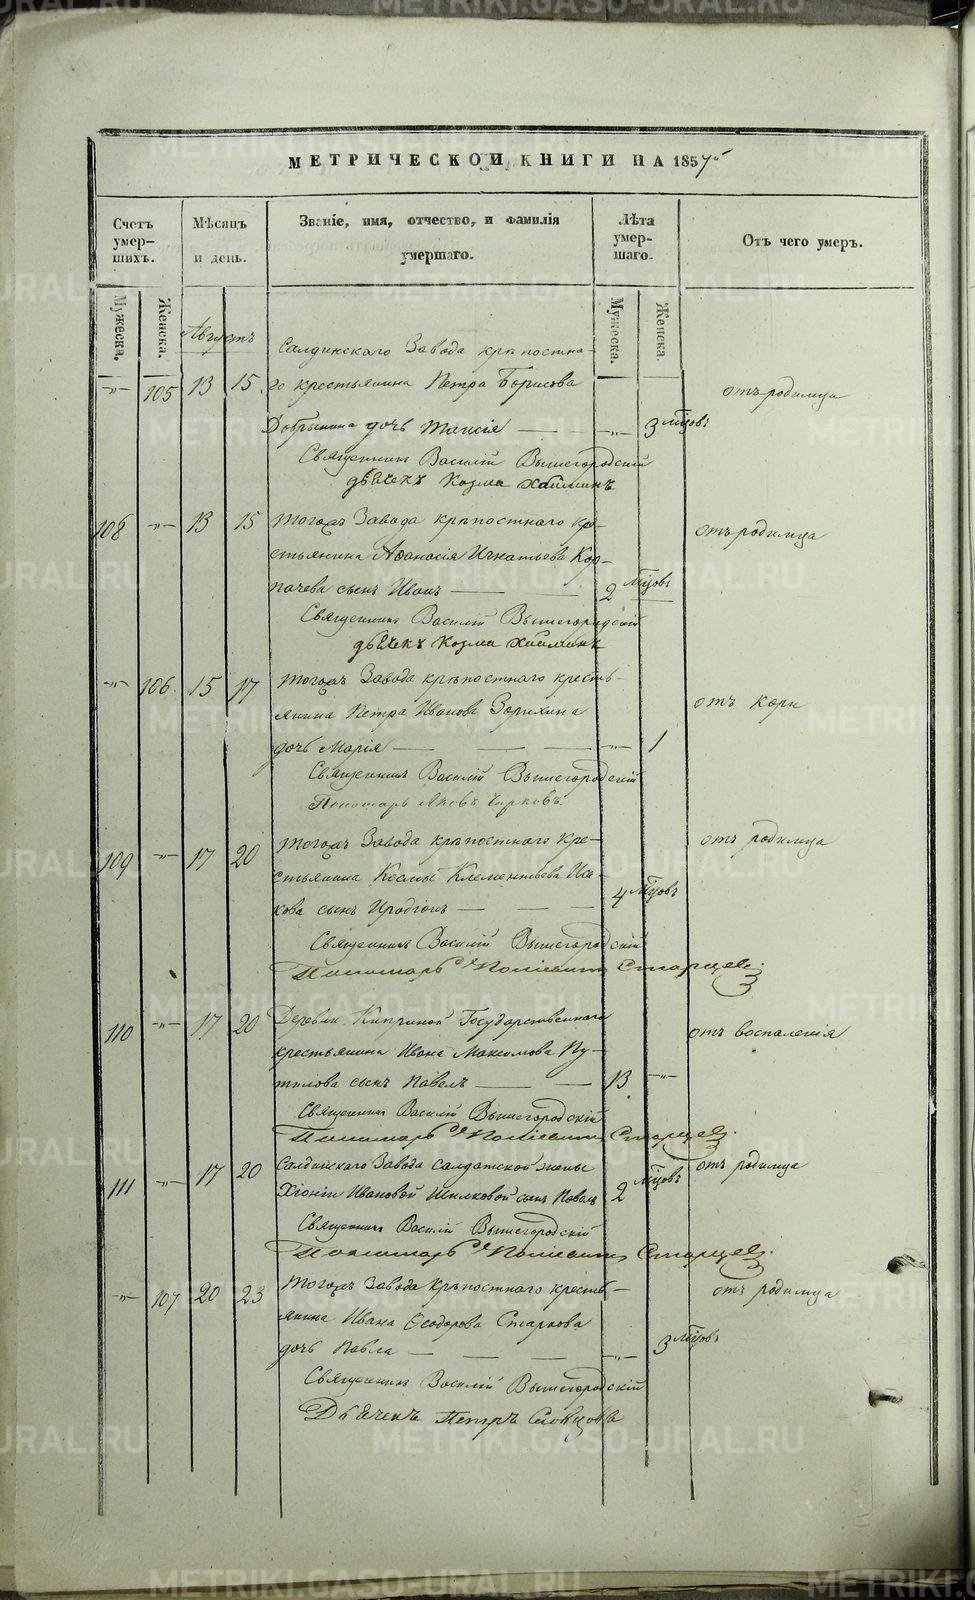 МЕТРИЧЕСКОЙ КНИГИ НА 1857й
Счетъ умер-шихъ.
Мужеска.
Женска.
Мѣсяцъ и день.
Званіе, имя, отчество, и фамилія умершаго.
Лѣта умер-шаго.
Мужеска.
Женска.
Отъ чего умеръ.
Августъ
Салдинскаго Завода крѣпостна-
-"- 105 13 15 го крестьянина Петра Борисова отъ родимца
Добрынина дочь Таисія -"- 3 мѣсцовъ
Священникъ Василій Вышегородскій
дьячекъ Козма Хайминъ
108 -"- 13 15 Тогожъ Завода крѣпостнаго кре- отъ родимца
стьянина Аѳанасія Игнатьева Кор-
пачева сынъ Иванъ 2 мѣсцовъ
Священникъ Василій Вышегородскій
дьячекъ Козма Хайминъ
-"- 106. 15 17 Тогожъ Завода крѣпостнаго кресть-
янина Петра Иванова Зорихина отъ кори
дочь Марія -"- 1
Священникъ Василій Вышегородскій
Пономарь Яковъ Чирковъ.
109 -"- 17 20 Тогожъ Завода крѣпостнаго кре- отъ родимца
стьянина Космы Клементьева Иса-
кова сынъ Иродіонъ 4 мѣсцовъ
Священникъ Василій Вышегородскій
Пономарь Старцевъ.
110 -"- 17 20 Деревни Киприной Государственнаго
крестьянина Ивана Максимова Пу- отъ воспаленія
тилова сынъ Павелъ 13 -"-
Священникъ Василій Вышегородскій
Пономарь Старцевъ.
Салдинскаго Завода салдатской жены отъ родимца
111 -"- 17 20 Хіоніи Ивановой Шилковой сынъ Павелъ 2 мѣсцовъ
Священникъ Василій Вышегородскій
Пономарь Старцевъ.
-"- 107 20 23 Тогожъ Завода Крѣпостнаго кресть- отъ родимца
янина Ивана Ѳеодорова Старкова
дочь Павла -"- 3 мѣсцовъ
Священникъ Василій Вышегородскій
Дьячекъ Петръ Словцовъ
METRIKI.GASO-URAL.RU